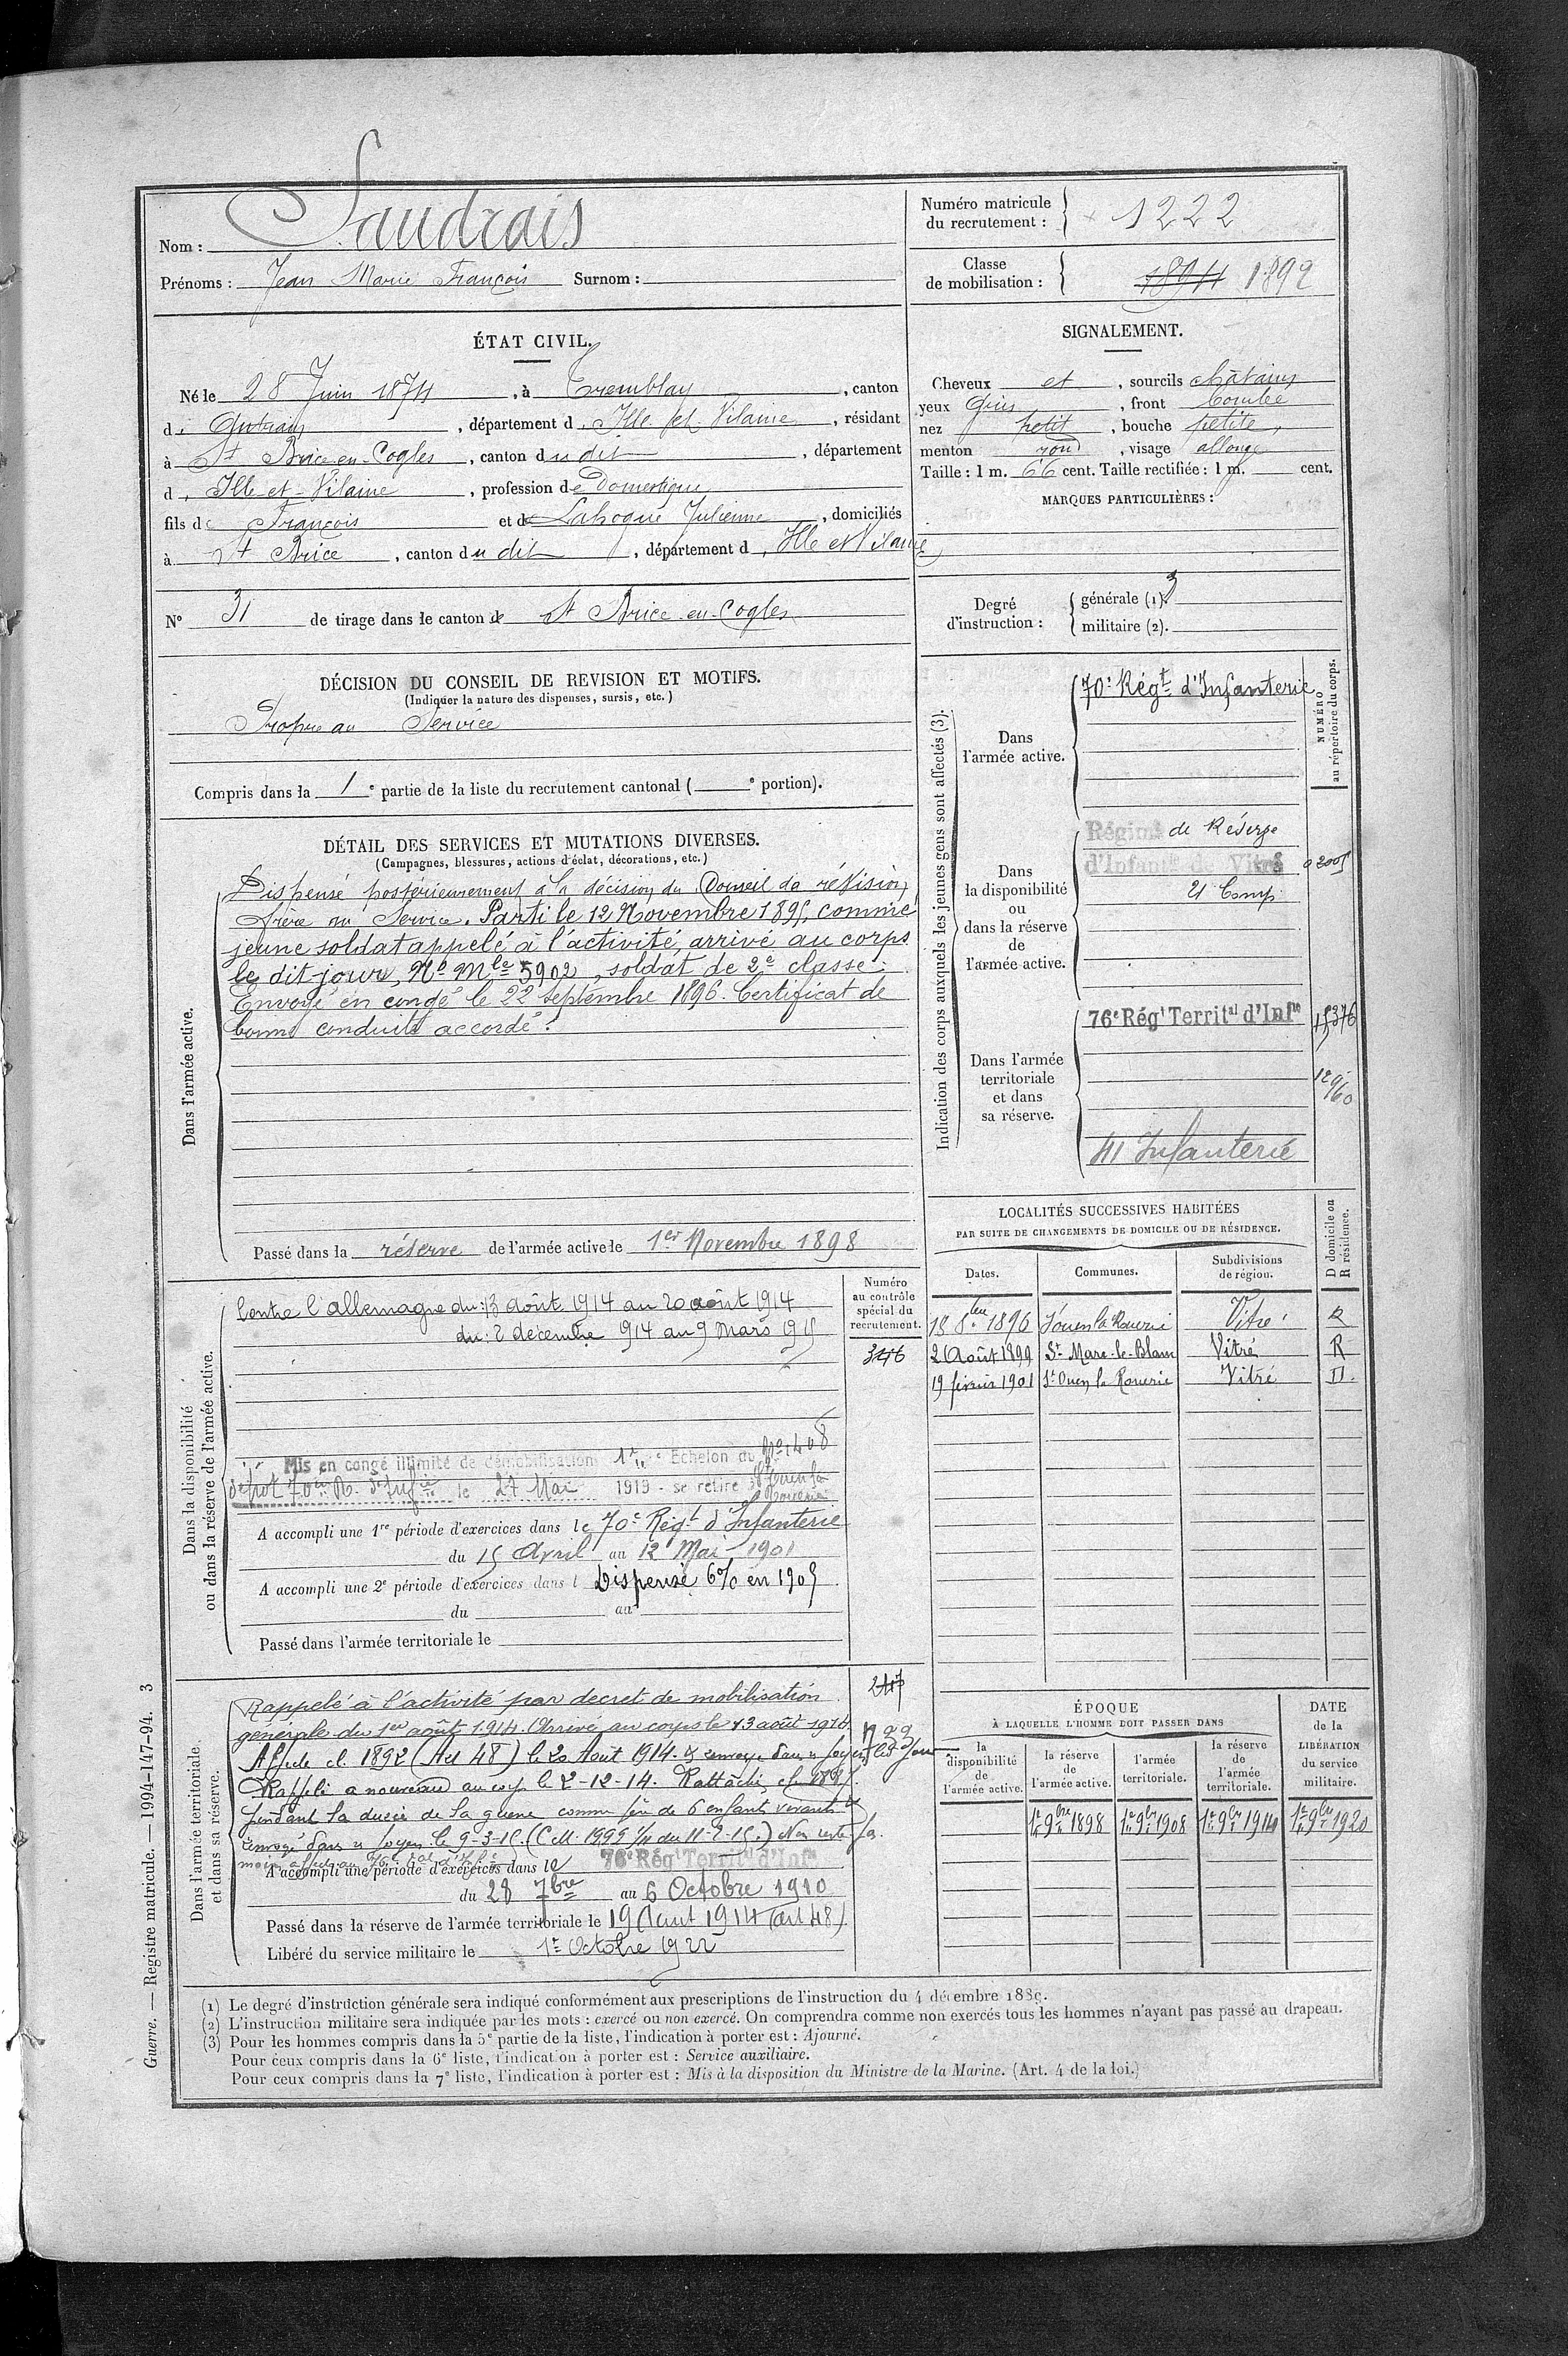 Nom : Saudrais
Prénoms : Jean Marie François Surnom :
Numéro matricule
du recrutement : 1222
Classe
de mobilisation : 1894 1892
ÉTAT CIVIL.
Né le 28 Juin 1874, à Tremblay, canton
d' Antrain, département d' Ille et Vilaine, résidant
à St Brice-en-Cogles, canton du dit, département
d' Ille-et-Vilaine, profession de Domestique
fils de François et de Lahogue Julienne, domiciliés
à St Brice, canton du dit, département d' Ille et Vilaine
N° 31 de tirage dans le canton de St Brice-en-Cogles
SIGNALEMENT.
Cheveux et, sourcils châtains
yeux Gris, front bombé
nez petit, bouche petite,
menton rond, visage allongé
Taille : 1 m. 66 cent. Taille rectifiée : 1 m. cent.
MARQUES PARTICULIÈRES :
Degré
d'instruction :
générale (1). 3
militaire (2).
DÉCISION DU CONSEIL DE REVISION ET MOTIFS.
(Indiquer la nature des dispenses, sursis, etc.)
Propre au Service
Compris dans la 1e partie de la liste du recrutement cantonal ( e portion).
DÉTAIL DES SERVICES ET MUTATIONS DIVERSES.
(Campagnes, blessures, actions d'éclat, décorations, etc.)
Dans l'armée active.
Dispensé postérieurement à la décision du Conseil de révision,
frère au Service. Parti le 12 Novembre 1895, comme
jeune soldat appelé à l'activité, arrivé au corps
le dit jour, No Mle 5902, soldat de 2e classe.
Envoyé en congé le 22 septembre 1896. Certificat de
bonne conduite accordé.
Passé dans la réserve de l'armée active le 1er Novembre 1898
Indication des corps auxquels les jeunes gens sont affectés (3).
NUMÉRO
au répertoire du corps.
Dans
l'armée active.
70e Régt d'Infanterie
Dans
la disponibilité
ou
dans la réserve
de
l'armée active.
Régimt de Réserve
d'Infantie de Vitré
21 Comp.
Dans l'armée
territoriale
et dans
sa réserve.
76e Régt Territal d'Infie
41 Infanterie
LOCALITÉS SUCCESSIVES HABITÉES
PAR SUITE DE CHANGEMENTS DE DOMICILE OU DE RÉSIDENCE.
Dates. Communes. Subdivisions de région. D domicile ou R résidence.
18 8bre 1896 St Ouen la Rouerie Vitré R
2 Août 1899 St Marc-le-Blanc Vitré R
19 février 1901 St Ouen la Rouerie Vitré D.
Dans la disponibilité
ou dans la réserve de l'armée active.
Numéro
au contrôle
spécial du
recrutement.
Contre l'allemagne du : 13 août 1914 au 20 août 1914
du : 2 décembre 914 au 9 Mars 915
Mis en congé illimité de démobilisation 1er Echelon du No 1408
dépôt 70e R. d'Infie le 27 Mai 1919 - se retire St Ouen la
Rouerie
A accompli une 1re période d'exercices dans le 70e Régt d'Infanterie
du 15 Avril au 12 Mai 1901
A accompli une 2e période d'exercices dans l Dispensé 6% en 1905
du au
Passé dans l'armée territoriale le
Dans l'armée territoriale
et dans sa réserve.
Rappelé à l'activité par decret de mobilisation
générale du 1er août 1914. Arrivé au corps le 13 août 1914.
Affecté cl. 1892 (Art 48) le 20 Août 1914. & renvoyé dans ses foyers led. jour
Rappelé a nouveau au corps le 2-12-14. Rattaché cl. 1887.
pendant la durée de la guerre comme père de 6 enfants vivants &
renvoyé dans ses foyers le 9-3-15. (C.M. 1999 du 11-2-15.)
A accompli une période d'exercices dans le 76e Régt Territal d'Infie
du 28 7bre au 6 Octobre 1910
Passé dans la réserve de l'armée territoriale le 19 Aout 1914 (art 48)
Libéré du service militaire le 1er Octobre 1922
ÉPOQUE
À LAQUELLE L'HOMME DOIT PASSER DANS
la disponibilité de l'armée active. la réserve de l'armée active. l'armée territoriale. la réserve de l'armée territoriale.
DATE
de la
LIBÉRATION
du service
militaire.
1er 9bre 1898 1er 9bre 1908 1er 9bre 1914 1er 9bre 1920
(1) Le degré d'instruction générale sera indiqué conformément aux prescriptions de l'instruction du 4 décembre 1889.
(2) L'instruction militaire sera indiquée par les mots : exercé ou non exercé. On comprendra comme non exercés tous les hommes n'ayant pas passé au drapeau.
(3) Pour les hommes compris dans la 5e partie de la liste, l'indication à porter est : Ajourné.
Pour ceux compris dans la 6e liste, l'indication à porter est : Service auxiliaire.
Pour ceux compris dans la 7e liste, l'indication à porter est : Mis à la disposition du Ministre de la Marine. (Art. 4 de la loi.)
Guerre. — Registre matricule. — 1994-147-94. 3